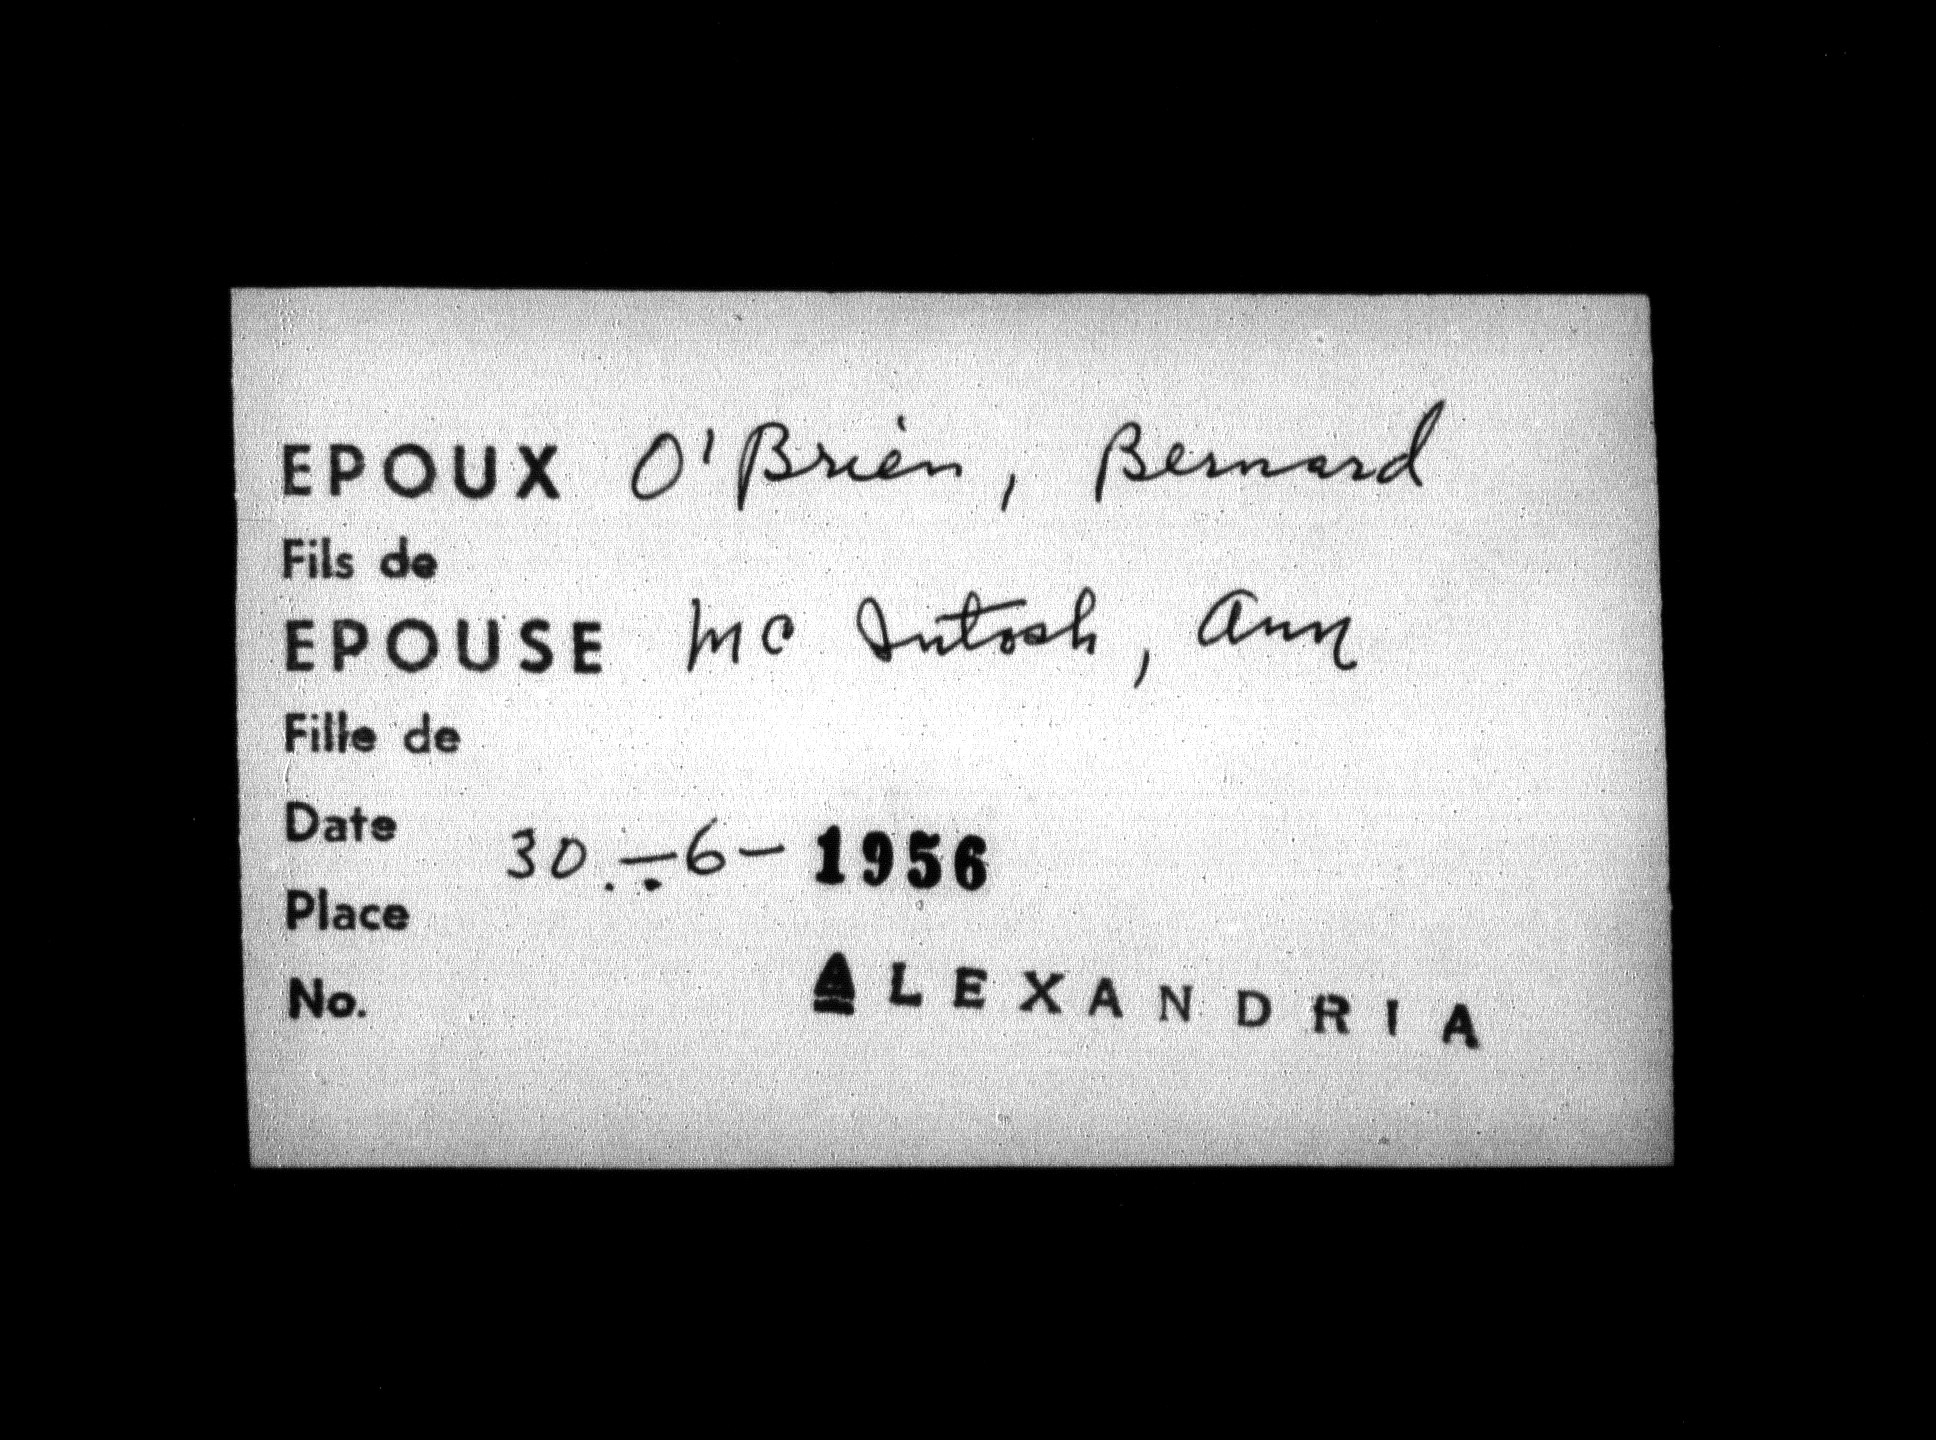 EPOUX O'Brien, Bernard
Fils de
EPOUSE Mc Intosh, Ann
Fille de
Date 30.-6-1956
Place
No. ALEXANDRIA